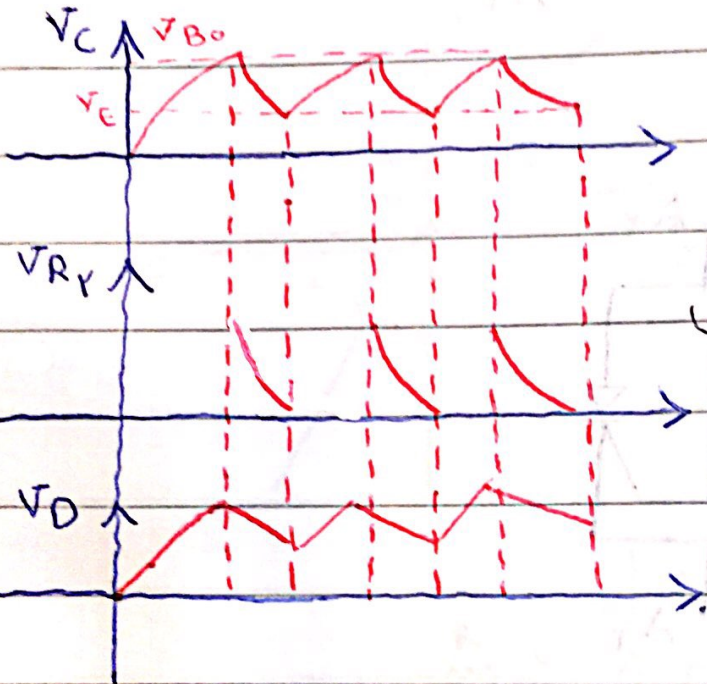 Vc VBo
VE
VRr
VD